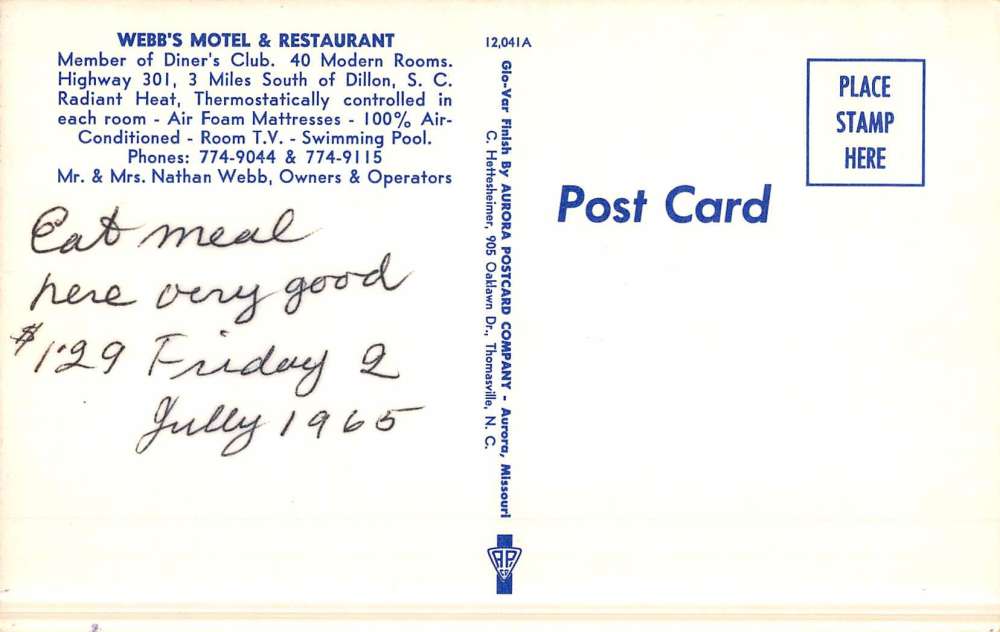 WEBB'S MOTEL & RESTAURANT
Member of Diner's Club. 40 Modern Rooms.
Highway 301, 3 Miles South of Dillon, S. C.
Radiant Heat, Thermostatically controlled in
each room - Air Foam Mattresses - 100% Air-
Conditioned - Room T.V. - Swimming Pool.
Phones: 774-9044 & 774-9115
Mr. & Mrs. Nathan Webb, Owners & Operators
Eat meal
here very good
$1.29 Friday 2
Jully 1965
12,041A
Glo-Var Finish By AURORA POSTCARD COMPANY - Aurora, Missouri
C. Hettesheimer, 905 Oaklawn Dr., Thomasville, N. C.
APCO
Post Card
PLACE
STAMP
HERE